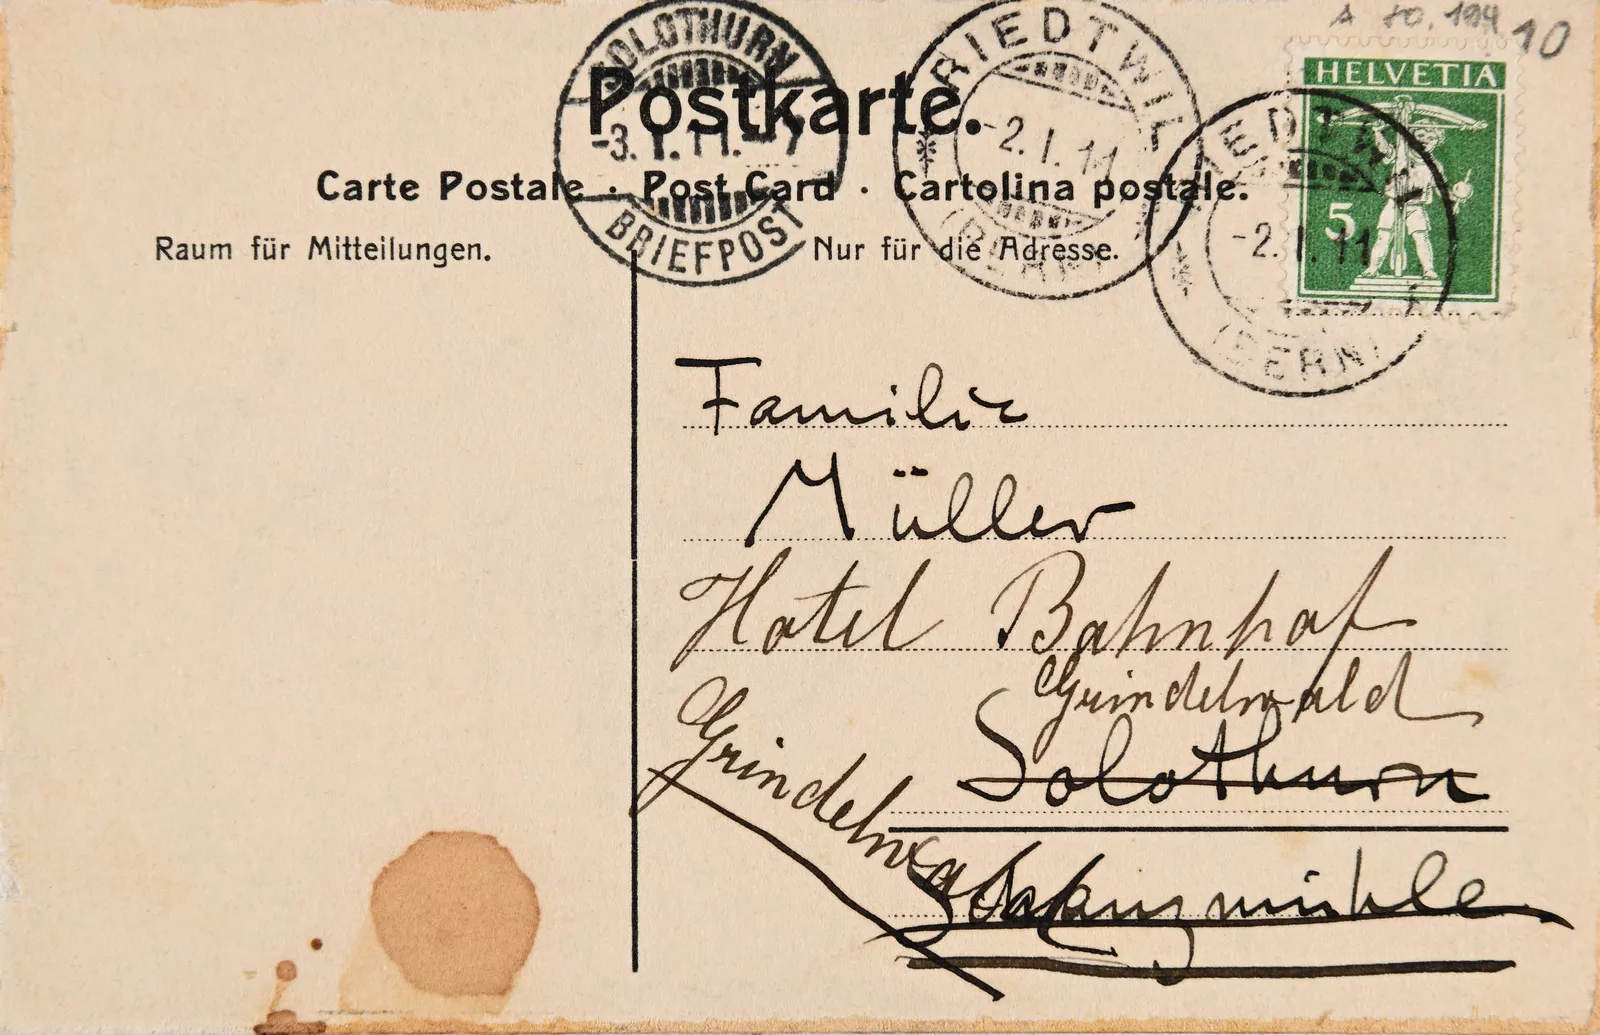 A 10.194 10
HELVETIA
5
SOLOTHURN
-3.I.11.-7
BRIEFPOST
RIEDTWIL
-2.I.11
(BERN)
RIEDTWIL
-2.I.11
(BERN)
Postkarte.
Carte Postale · Post Card · Cartolina postale.
Raum für Mitteilungen.
Nur für die Adresse.
Familie
Müller
Hotel Bahnhof
Grindelwald
Solothurn
Grindelwald
Schanzmühle